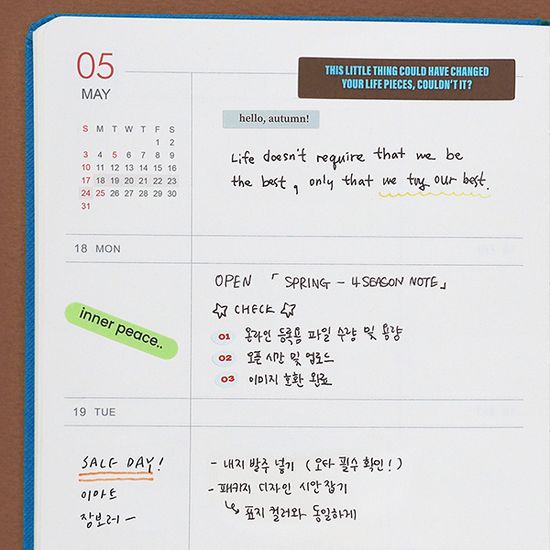 05
MAY
THIS LITTLE THING COULD HAVE CHANGED
YOUR LIFE PIECES, COULDN'T IT?
hello, autumn!
S M T W T F S
1 2
3 4 5 6 7 8 9
10 11 12 13 14 15 16
17 18 19 20 21 22 23
24 25 26 27 28 29 30
31
Life doesn't require that we be
the best, only that we try our best.
18 MON
OPEN 「SPRING - 4 SEASON NOTE」
☆ CHECK ☆
inner peace..
01 온라인 등록용 파일 수량 및 용량
02 오픈 시간 및 업로드
03 이미지 호환 완료
19 TUE
SALE DAY!
이마트
장보러~
- 내지 발주 넣기 (오타 필수 확인!)
- 패키지 디자인 시안 잡기
↳ 표지 컬러와 동일하게